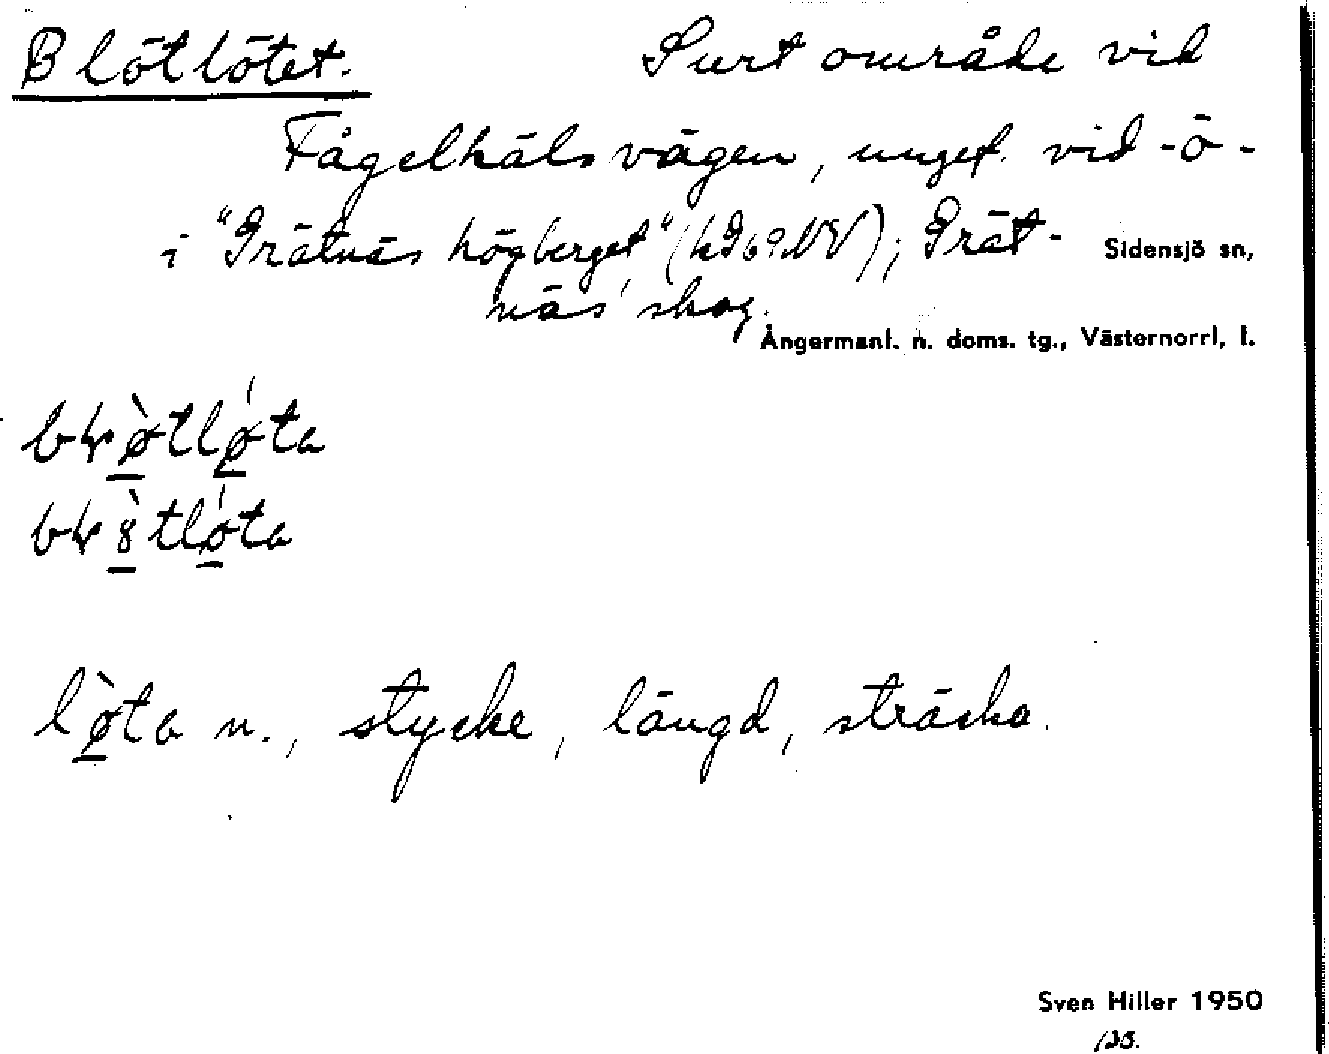 Blötlötet. Surt område vid
Fågelhälsvägen, ungef. vid -ö-
i "Grätnäs högberget" (kJ69NV); Grät-
Sidensjö sn,
näs skog.
Ångermanl. n. doms. tg., Västernorrl. l.
lø̀ta n., stycke, längd, sträcka.
Sven Hiller 1950